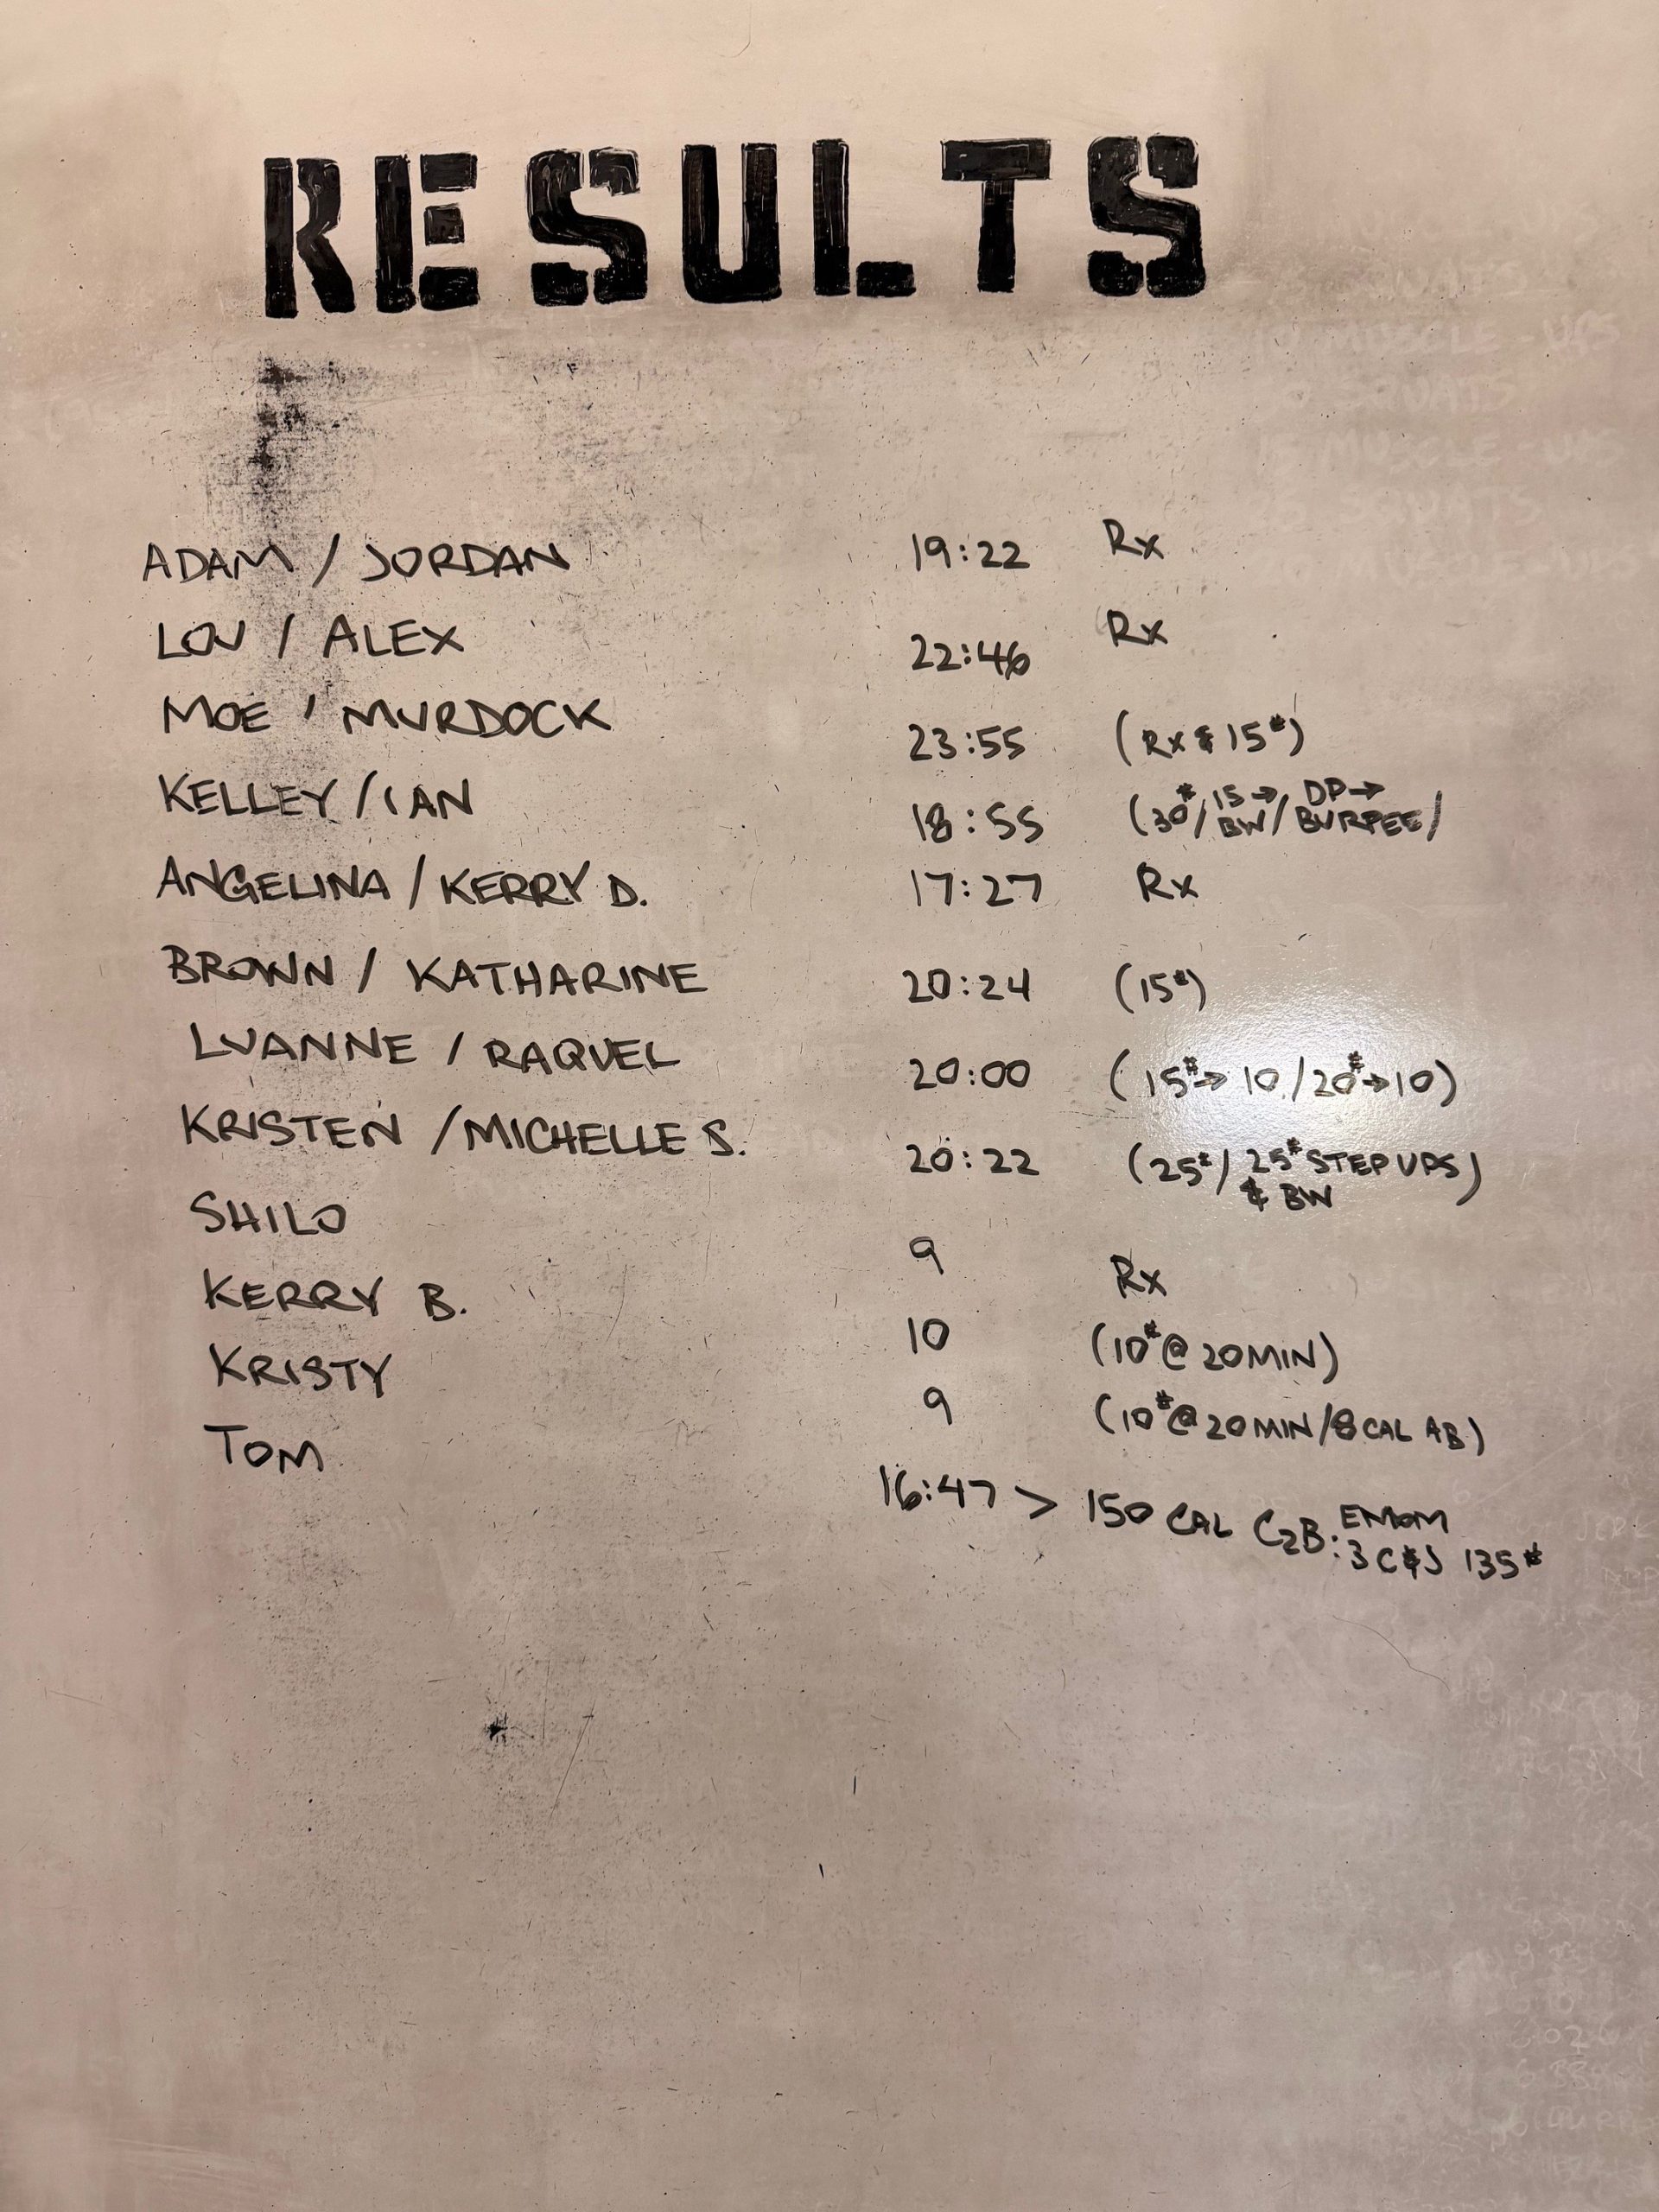 RESULTS
ADAM / JORDAN 19:22 Rx
LOU / ALEX 22:46 Rx
MOE / MURDOCK 23:55 (Rx & 15#)
KELLEY / IAN 18:55 (30#/ 15→ BW / DP→ BURPEE/
ANGELINA / KERRY D. 17:27 Rx
BROWN / KATHARINE 20:24 (15#)
LUANNE / RAQUEL 20:00 (15#→ 10 / 20#→10)
KRISTEN / MICHELLE S. 20:22 (25#/ 25# STEP UPS)
& BW
SHILO 9 Rx
KERRY B. 10 (10#@ 20MIN)
KRISTY 9 (10#@ 20MIN/8 CAL AB)
TOM 16:47 > 150 CAL C2B: EMOM
3 C&J 135#
SQUATS
MUSCLE-UPS
SQUATS
MUSCLE-UPS
SQUATS